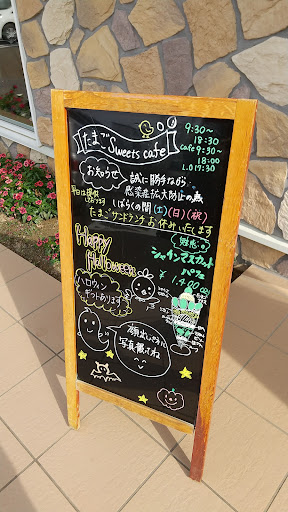 たまご Sweets cafe
9:30〜
18:30
cafe 9:30〜
18:00
L.O 17:30
お知らせ
誠に勝手ながら
感染症拡大防止の為
しばらくの間(土)(日)(祝)
たまごサンドランチ お休みいたします
Happy
Halloween
シャインマスカット
パフェ
¥1,400
ハロウィン
ギフトあります
顔出しせずに
写真撮ってね